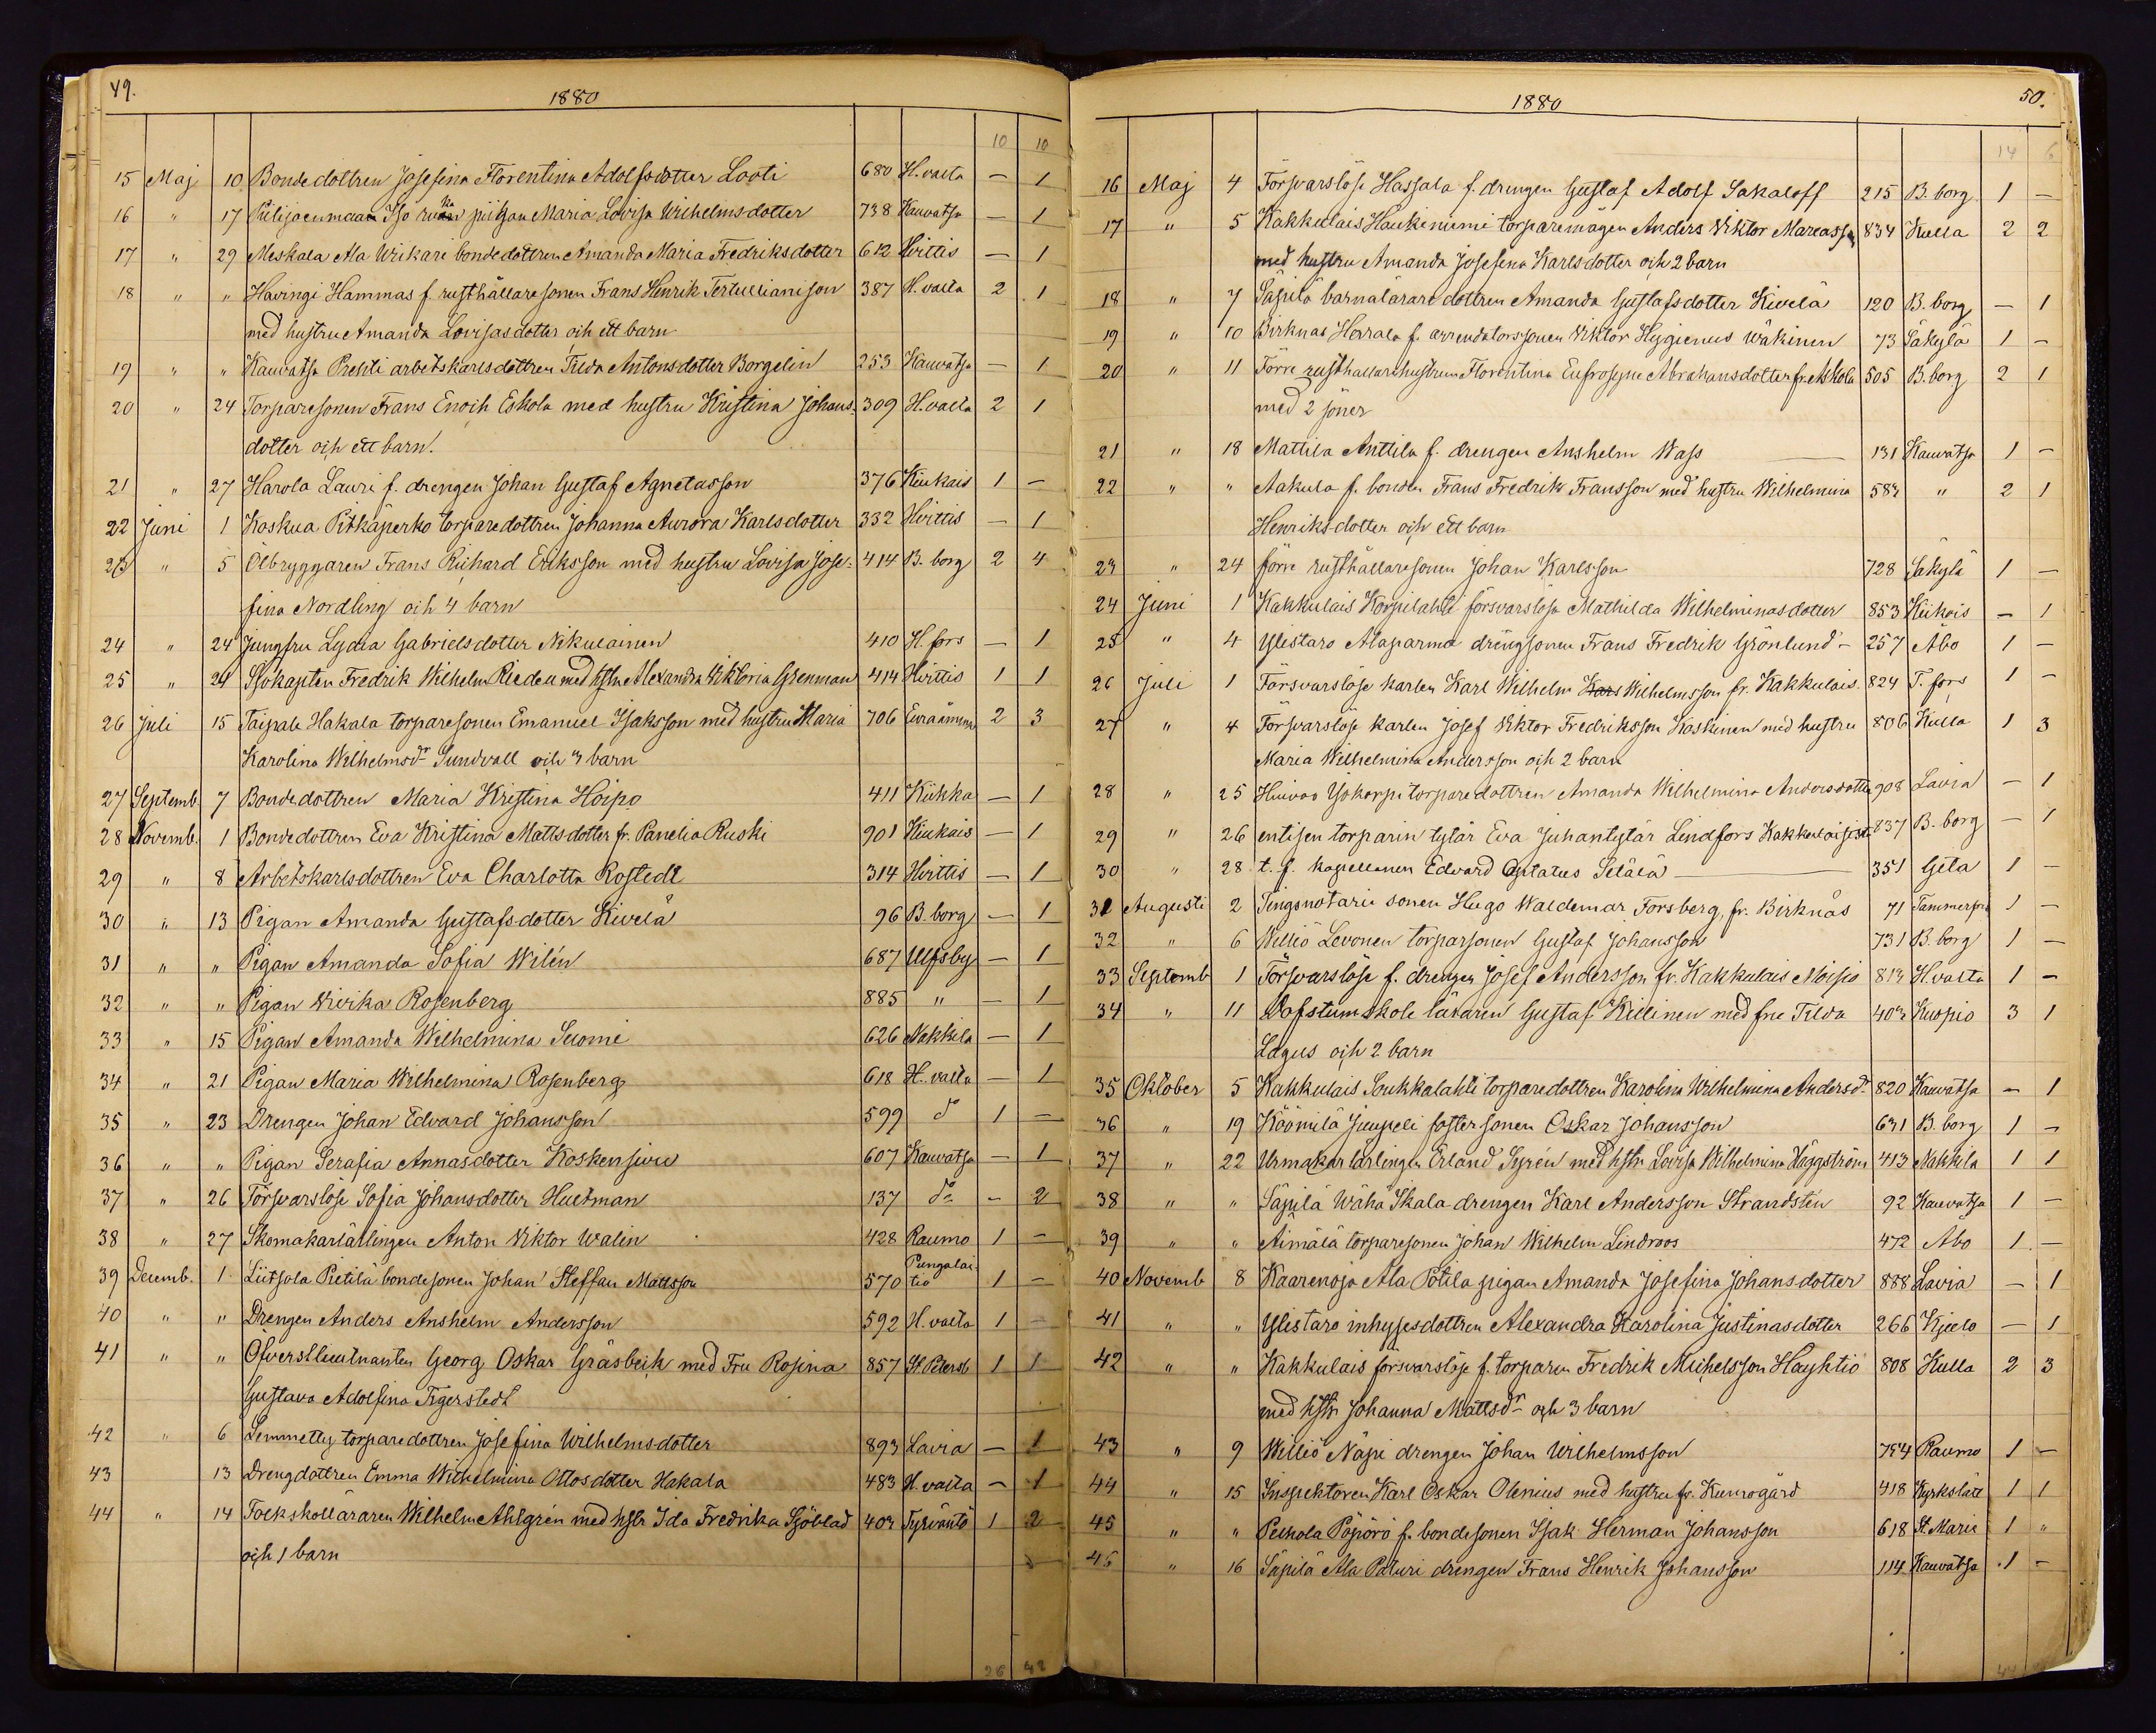 49.
1880
10 10
15 Maj 10 Bondedottren Josefina Florentina Adolfsdotter Looti 680 H.valta — 1
16 " 17 Piilijoenmaan Iso piikan Maria Lovisa Wilhelmsdotter 738 Kauvatsa — 1
17 " 29 Meskala Ala Wrikari bondedottren Amanda Maria Fredriksdotter 612 Hvittis — 1
18 " " Havingi Hammas f. rusthållaresonen Frans Henrik Tertulliansson 387 H.valta 2 1
med hustru Amanda Lovisasdotter och ett barn
19 " " Kauvatsa Prehti arbetskarlsdottren Tilda Antonsdotter Borgelin 253 Kauvatsa — 1
20 " 24 Torparesonen Frans Enoch Eskola med hustru Kristina Johans- 309 H.valta 2 1
dotter och ett barn.
21 " 27 Harola Lauri f. drengen Johan Gustaf Agnetasson 376 Kiukais 1 —
22 Juni 1 Koskua Pitkäperko torparedottren Johanna Aurora Karlsdotter 332 Hvittis — 1
23 " 5 Ölbryggaren Frans Richard Eriksson med hustru Lovisa Jose- 414 B.borg 2 4
fina Nordling och 4 barn
24 " 24 Jungfru Lydia Gabrielsdotter Nikulainen 410 H.fors — 1
25 " 24 Sjökapten Fredrik Wilhelm Riedell med hstr Alexandra Viktoria Grenman 414 Hvittis 1 1
26 Juli 15 Taipale Hakala torparesonen Emanuel Isaksson med hustru Maria 706 Euraåminne 2 3
Karolina Wilhelmsdr Sundvall och 3 barn
27 Septemb. 7 Bondedottren Maria Kristina Hoipo 411 Kiikka — 1
28 Novemb. 1 Bondedottren Eva Kristina Mattsdotter fr. Panelia Ruski 901 Kiukais — 1
29 " 8 Arbetskarlsdottren Eva Charlotta Rostedt 314 Hvittis — 1
30 " 13 Pigan Amanda Gustafsdotter Kivelä 96 B.borg — 1
31 " " Pigan Amanda Sofia Wilén 687 Ulfsby — 1
32 " " Pigan Wivika Rosenberg 885 " — 1
33 " 15 Pigan Amanda Wilhelmina Suomi 626 Nakkila — 1
34 " 21 Pigan Maria Wilhelmina Rosenberg 618 H.valta — 1
35 " 23 Drengen Johan Edvard Johansson 599 do 1 —
36 " " Pigan Serafia Annasdotter Koskensivu 607 Kauvatsa — 1
37 " 26 Försvarslöse Sofia Johansdotter Hultman 137 do — 2
38 " 27 Skomakarlärlingen Anton Viktor Walin 428 Raumo 1 —
39 Decemb. 1 Liitsola Pietilä bondesonen Johan Steffan Mattsson 570 Pungalaitio 1 —
40 " " Drengen Anders Anshelm Andersson 592 H.valta 1 —
41 " " Öfverstleutnanten Georg Oskar Gräsbeck med Fru Rosina 857 St.Petersb 1 1
Gustava Adolfina Tigerstedt
42 " 6 Lemmetty torparedottren Josefina Wilhelmsdotter 893 Lavia — 1
43 13 Drengdottren Emma Wilhelmina Ottosdotter Hakala 483 H.valta — 1
44 " 14 Folkskolläraren Wilhelm Ahlgrén med hstr Ida Fredrika Sjöblad 403 Tyrväntö 1 2
och 1 barn
26 42
1880
50.
14 6
16 Maj 4 Försvarslöse Hassala f. drengen Gustaf Adolf Sakaloff 215 B.borg 1 —
17 " 5 Kakkulais Haukiniemi torparemågen Anders Viktor Mareasson 834 Kulla 2 2
med hustru Amanda Josefina Karlsdotter och 2 barn
18 " 7 Säpilä barnalärare dottren Amanda Gustafsdotter Kivelä 120 B.borg — 1
19 " 10 Birknäs Horrala f. arrendatorssonen Viktor Hygienus Wäkinen 73 Säkylä 1 —
20 " 11 Förre rusthållarehustrun Florentina Eufrosyne Abrahamsdotter fr. Askola 505 B.borg 2 1
med 2 söner
21 " 18 Mattila Anttila f. drengen Anshelm Wass 131 Kauvatsa 1 —
22 " " Aakula f. bonden Frans Fredrik Fransson med hustru Wilhelmina 583 " 2 1
Henriksdotter och ett barn
23 " 24 förre rusthållaresonen Johan Karlsson 728 Säkylä 1 —
24 Juni 1 Kakkulais Korpilahti försvarslösa Mathilda Wilhelminasdotter 853 Kiukais — 1
25 " 4 Ylistaro Alaparma drengsonen Frans Fredrik Grönlund — 257 Åbo 1 —
26 Juli 1 Försvarslöse karlen Karl Wilhelm Kars Wilhelmsson fr. Kakkulais 824 T.fors 1 —
27 " 4 Försvarslöse karlen Josef Viktor Fredriksson Koskinen med hustru 806 Kulla 1 3
Maria Wilhelmina Andersson och 2 barn
28 " 25 Huivoo Yökorpi torparedottren Amanda Wilhelmina Andersdotter 908 Lavia — 1
29 " 26 entisen torparin tytär Eva Juhantytär Lindfors Kakkulaisista 837 B.borg — 1
30 " 28 t. f. kapellanen Edvard Optatus Setälä 351 Geta 1 —
31 Augusti 2 Tingsnotarie sonen Hugo Waldemar Forsberg fr. Birknäs 71 Tammerfors 1 —
32 " 6 Williö Levonen torparsonen Gustaf Johansson 731 B.borg 1 —
33 Septemb 1 Försvarslöse f. drengen Josef Andersson fr. Kakkulais Moisio 813 H.valta 1 —
34 " 11 Dofstumskole läraren Gustaf Killinen med fru Tilda 403 Kuopio 3 1
Lagus och 2 barn
35 Oktober 5 Kakkulais Soukkalahti torparedottren Karolina Wilhelmina Andersdr 820 Kauvatsa — 1
36 " 19 Köömilä Juupeli fostersonen Oskar Johansson 631 B.borg 1 —
37 " 22 Urmakarlärlingen Erland Syrén med hstr Lovisa Wilhelmina Häggström 413 Nakkila 1 1
38 " " Säpilä Wähä Skala drengen Karl Andersson Strandstén 92 Kauvatsa 1 —
39 " " Äimälä torparesonen Johan Wilhelm Lindroos 472 Åbo 1 —
40 Novemb 8 Kaarenoja Ala Potila pigan Amanda Josefina Johansdotter 888 Lavia — 1
41 " " Ylistaro inhysesdottren Alexandra Karolina Justinasdotter 266 Kjulo — 1
42 " " Kakkulais försvarslöse f. torparen Fredrik Michelsson Hayhtiö 808 Kulla 2 3
med hstr Johanna Mattsdr och 3 barn
43 " 9 Williö Näpi drengen Johan Wilhelmsson 734 Raumo 1 —
44 " 15 Inspektoren Karl Oskar Olenius med hustru fr. Kumogård 418 Kyrkslätt 1 1
45 " " Peihola Pöpörö f. bondesonen Isak Herman Johansson 618 St.Marie 1 "
46 " 16 Säpilä Ala Paturi drengen Frans Henrik Johansson 114 Kauvatsa 1 —